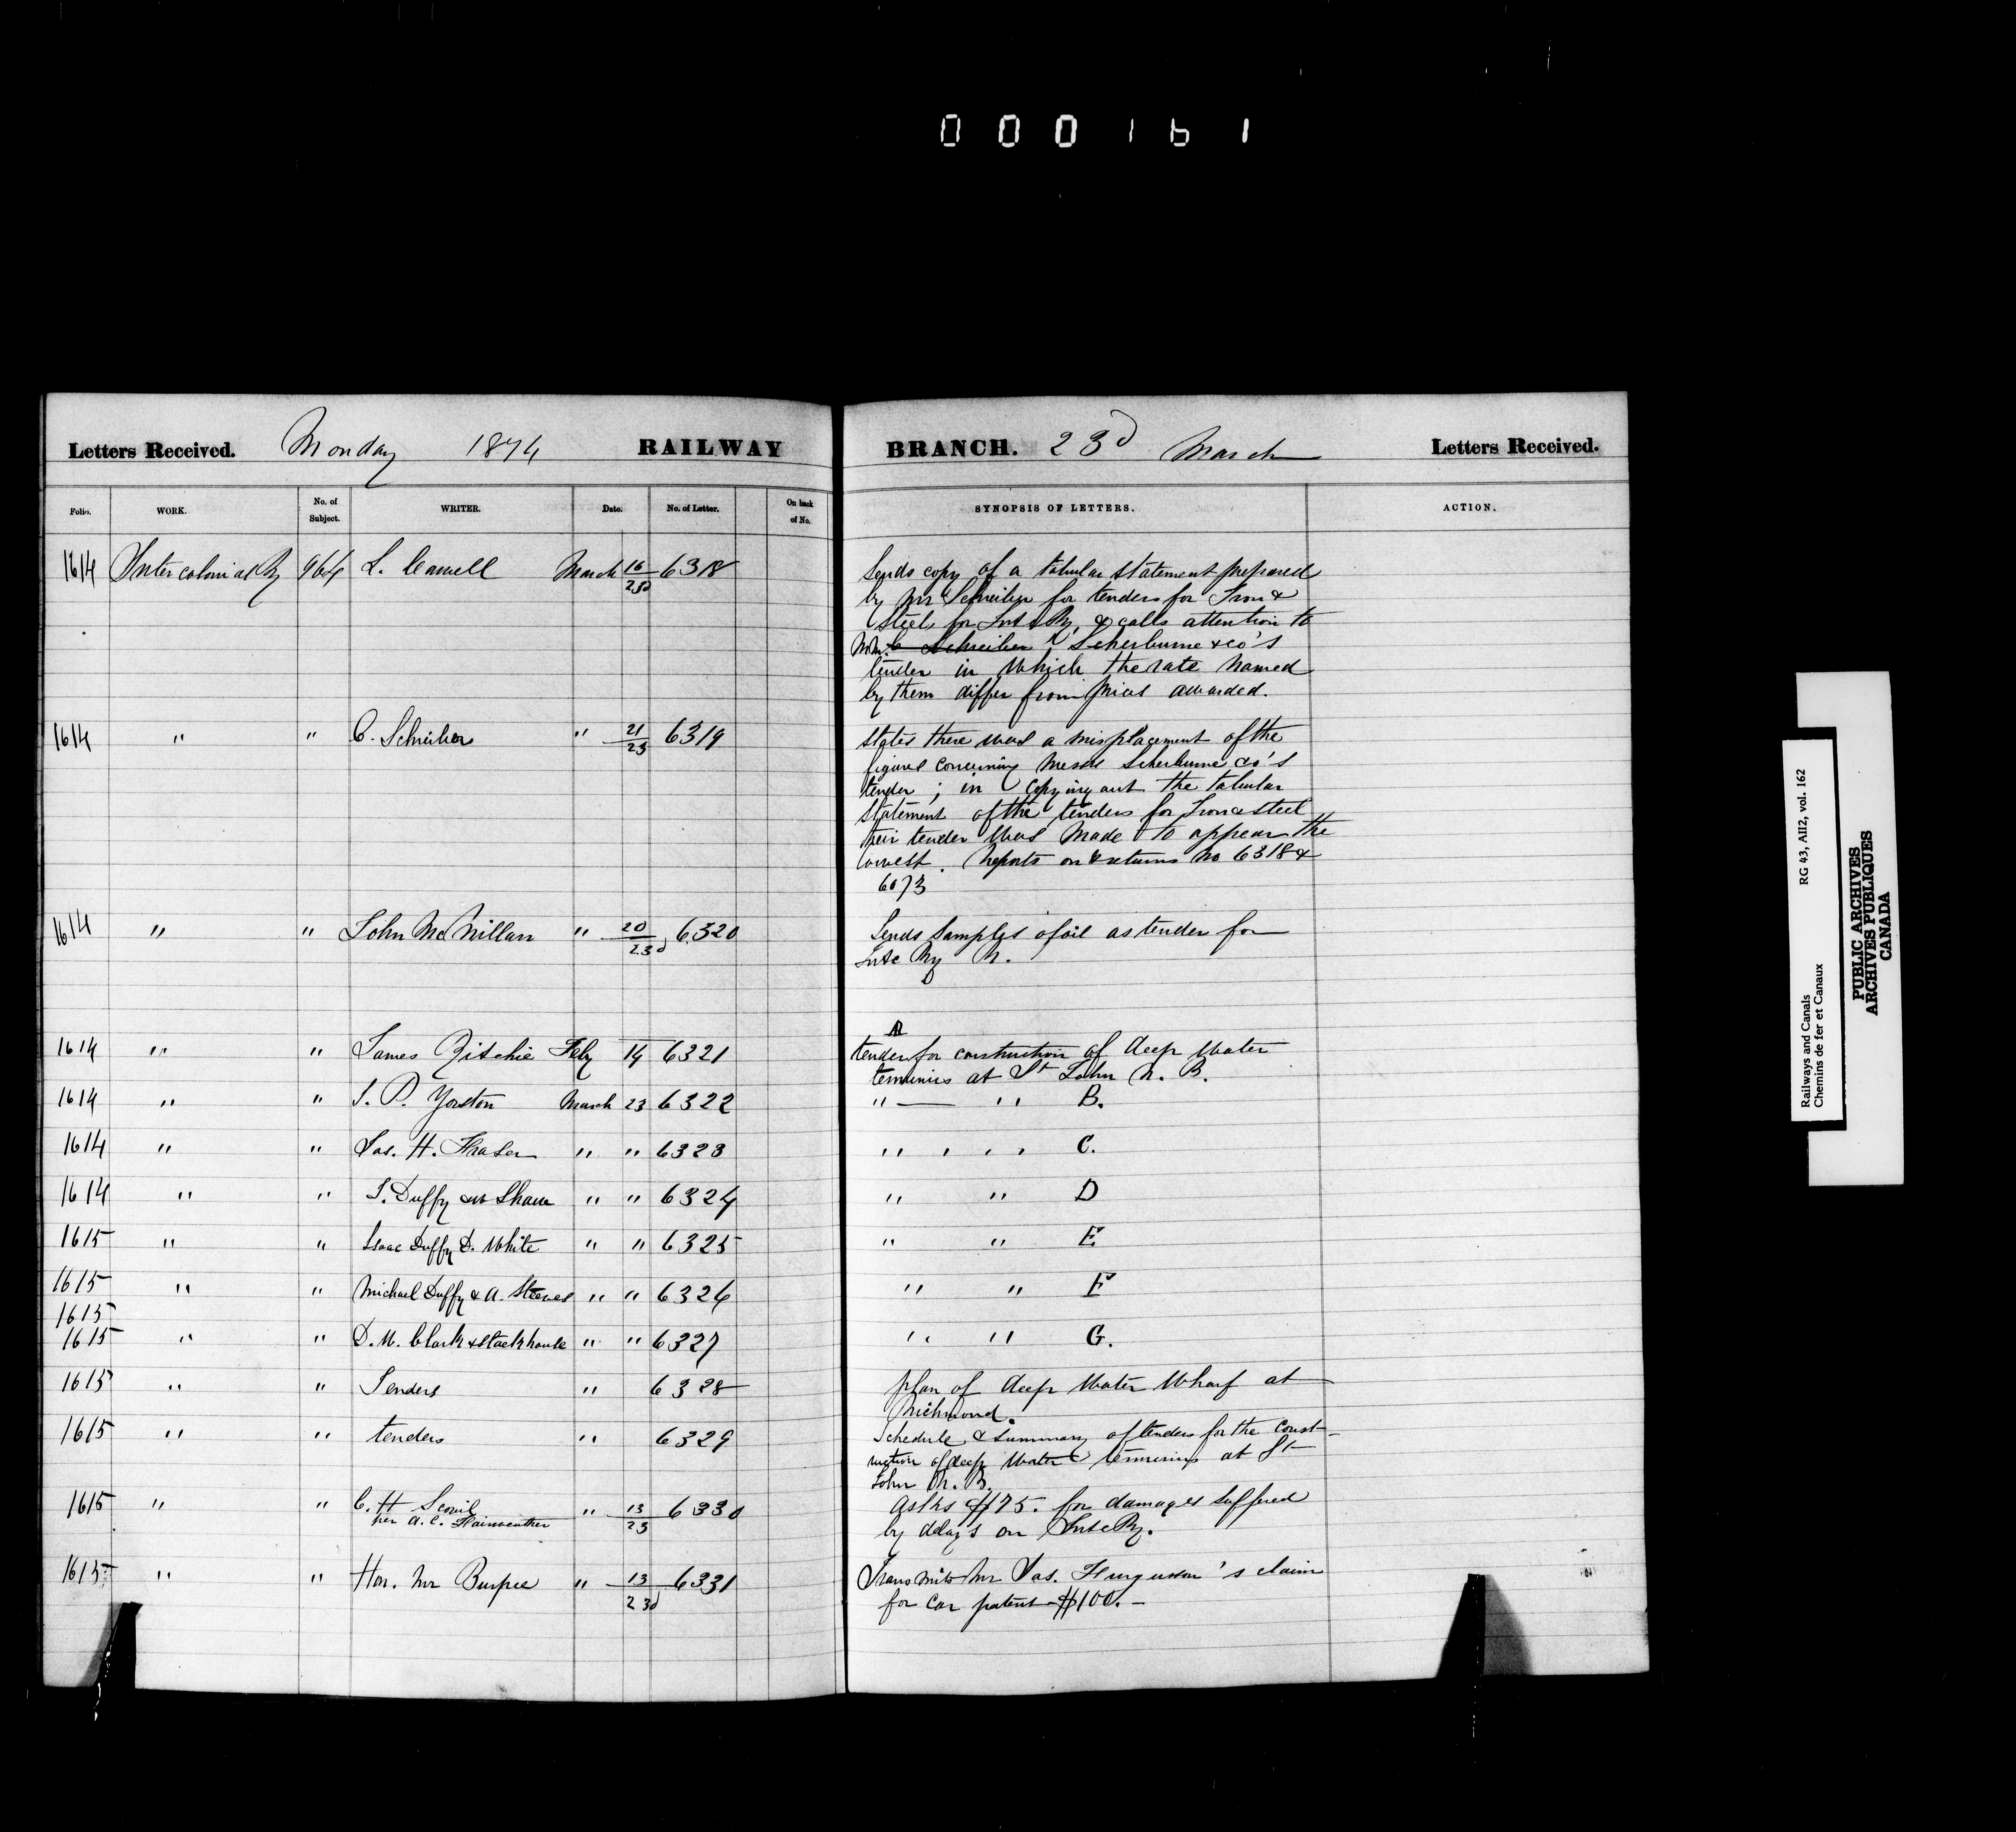 000161
Letters Received. Monday 1874 RAILWAY BRANCH. 23d March Letters Received.
Folio. WORK. No. of Subject. WRITER. Date. No. of Letter. On back of No. SYNOPSIS OF LETTERS. ACTION.
1614 Intercolonial Ry 964 L. Carvell March 16/23d 6318 Sends copy of a tabular statement prepared
by Mr Schreiber for tenders for Iron &
Steel for Int c Ry, & calls attention to
C Schreiber Scherburne & co's
tender in which the rate named
by them differ from prices awarded.
1614 " " C. Schreiber " 21/23 6319 States there was a misplacement of the
figures concerning Messrs Scherburne Co's
tender; in copying out the tabular
statement of the tenders for Iron & steel
their tender was made to appear the
lowest. Reports on & returns No 6318 &
6073
1614 " " John McMillan " 20/23d 6320 Sends samples of oil as tender for
Intc Ry
A
1614 " " James Ritchie Feby 14 6321 tender for construction of deep water
terminus at St John N. B.
1614 " " J. P. Yorston March 23 6322 " — " B.
1614 " " Jas. H. Fraser " " 6323 " " " " C.
1614 " " J. Duffy & W Shaw " " 6324 " " D
1615 " " Isaac Duffy D. White " " 6325 " " E
1615 " " Michael Duffy & A. Steeves " " 6326 " " F
1615
1615 " " D. M. Clark & Stackhouse " " 6327 " " G.
1615 " " Tenders " 6328 plan of deep Water Wharf at
Richmond.
1615 " " tenders " 6329 Schedule & summary of tenders for the const-
ruction of deep water terminus at St
John N. B.
1615 " " C. H Scovil " 13/23 6330 asks $75. for damages suffered
per A. C. Fairweather
by delays on Intc Ry.
1615 " " Hon. Mr Burpee " 13/23d 6331 Transmits Mr Jas. Ferguson's claim
for car patent $100. —
Railways and Canals RG 43, AII2, vol. 162
Chemins de fer et Canaux
PUBLIC ARCHIVES
ARCHIVES PUBLIQUES
CANADA